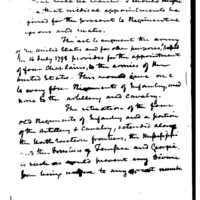 that medical appointments be
fined for the present to Regimental
and
The act to augment the army
of the United States and for other purposes, passed
the 16 July 1798 provides for the appointment
of four Chaplains, to the armies of the
United States. This would give one
to every four Regiments of Infantry, and
none to the artillery and Cavalry.
The situation of the four
old Regiments of Infantry and a portion
of the Artillery & Cavalry, extended along
the North Western frontiers, the Mississippi
and the frontiers of Tennessee and Georgia,
is such as would prevent any Divine
from being useful to any great number